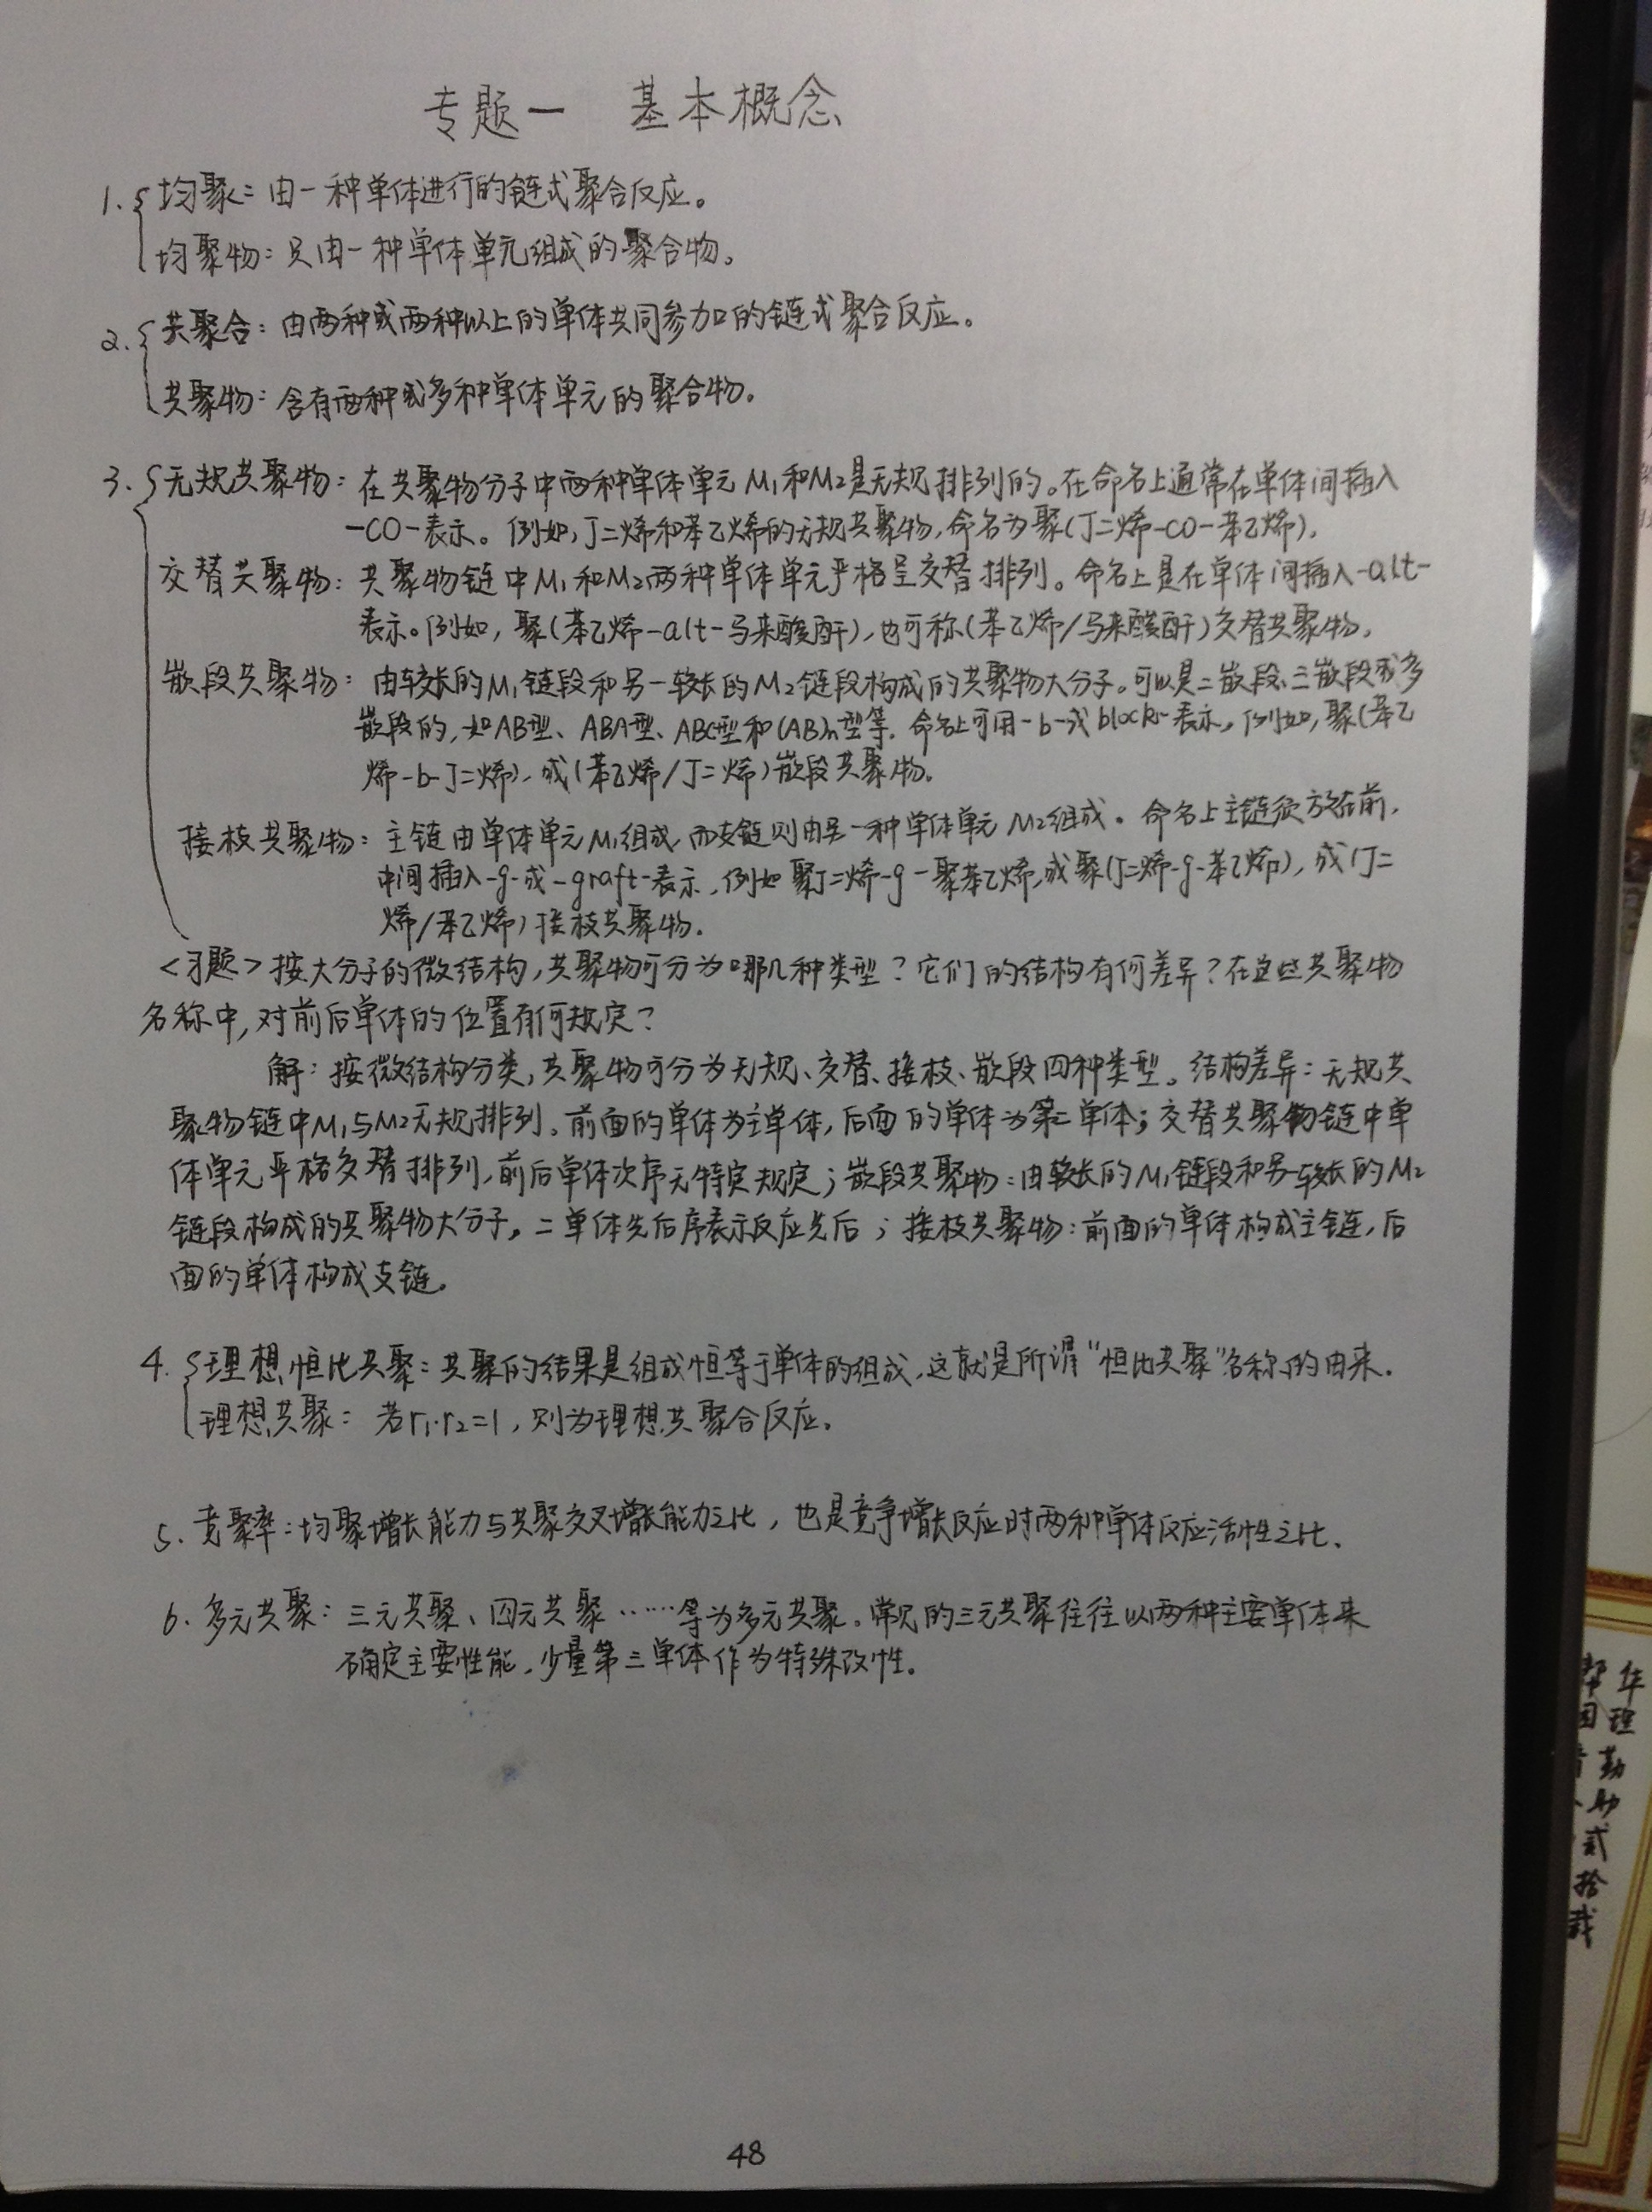 专题一 基本概念
1. 均聚：由一种单体进行的链式聚合反应。
均聚物：只由一种单体单元组成的聚合物。
2. 共聚合：由两种或两种以上的单体共同参加的链式聚合反应。
共聚物：含有两种或多种单体单元的聚合物。
3. 无规共聚物：在共聚物分子中两种单体单元M₁和M₂是无规排列的。在命名上通常在单体间插入
-CO-表示。例如，丁二烯和苯乙烯的无规共聚物，命名为聚(丁二烯-CO-苯乙烯)。
交替共聚物：共聚物链中M₁和M₂两种单体单元严格呈交替排列。命名上是在单体间插入-alt-
表示。例如，聚(苯乙烯-alt-马来酸酐)，也可称(苯乙烯/马来酸酐)交替共聚物。
嵌段共聚物：由较长的M₁链段和另一较长的M₂链段构成的共聚物大分子。可以是二嵌段、三嵌段或多
嵌段的，如AB型、ABA型、ABC型和(AB)n型等。命名上可用-b-或block-表示。例如，聚(苯乙
烯-b-丁二烯)，或(苯乙烯/丁二烯)嵌段共聚物。
接枝共聚物：主链由单体单元M₁组成，而支链则由另一种单体单元M₂组成。命名上主链须放在前，
中间插入-g-或-graft-表示，例如聚丁二烯-g-聚苯乙烯，或聚(丁二烯-g-苯乙烯)，或(丁二
烯/苯乙烯)接枝共聚物。
<习题>按大分子的微结构，共聚物可分为哪几种类型？它们的结构有何差异？在这些共聚物
名称中，对前后单体的位置有何规定？
解：按微结构分类，共聚物可分为无规、交替、接枝、嵌段四种类型。结构差异：无规共
聚物链中M₁与M₂无规排列。前面的单体为主单体，后面的单体为第二单体；交替共聚物链中单
体单元严格交替排列，前后单体次序无特定规定；嵌段共聚物：由较长的M₁链段和另一较长的M₂
链段构成的共聚物大分子。二单体先后序表示反应先后；接枝共聚物：前面的单体构成主链，后
面的单体构成支链。
4. 理想恒比共聚：共聚的结果是组成恒等于单体的组成，这就是所谓“恒比共聚”名称的由来.
理想共聚：若r₁·r₂=1，则为理想共聚合反应。
5. 竞聚率：均聚增长能力与共聚交叉增长能力之比，也是竞争增长反应时两种单体反应活性之比.
6. 多元共聚：三元共聚、四元共聚……等为多元共聚。常见的三元共聚往往以两种主要单体来
确定主要性能，少量第三单体作为特殊改性。
48
华理勤助贰拾载